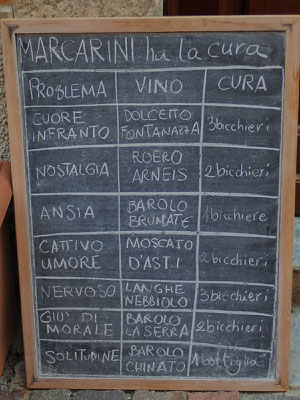 MARCARINI ha la cura
PROBLEMA VINO CURA
CUORE INFRANTO DOLCETTO FONTANAZZA 3 bicchieri
NOSTALGIA ROERO ARNEIS 2 bicchieri
ANSIA BAROLO BRUNATE 1 bicchiere
CATTIVO UMORE MOSCATO D'ASTI 2 bicchieri
NERVOSO LANGHE NEBBIOLO 3 bicchieri
GIU' DI MORALE BAROLO LA SERRA 2 bicchieri
SOLITUDINE BAROLO CHINATO 1 bottiglia